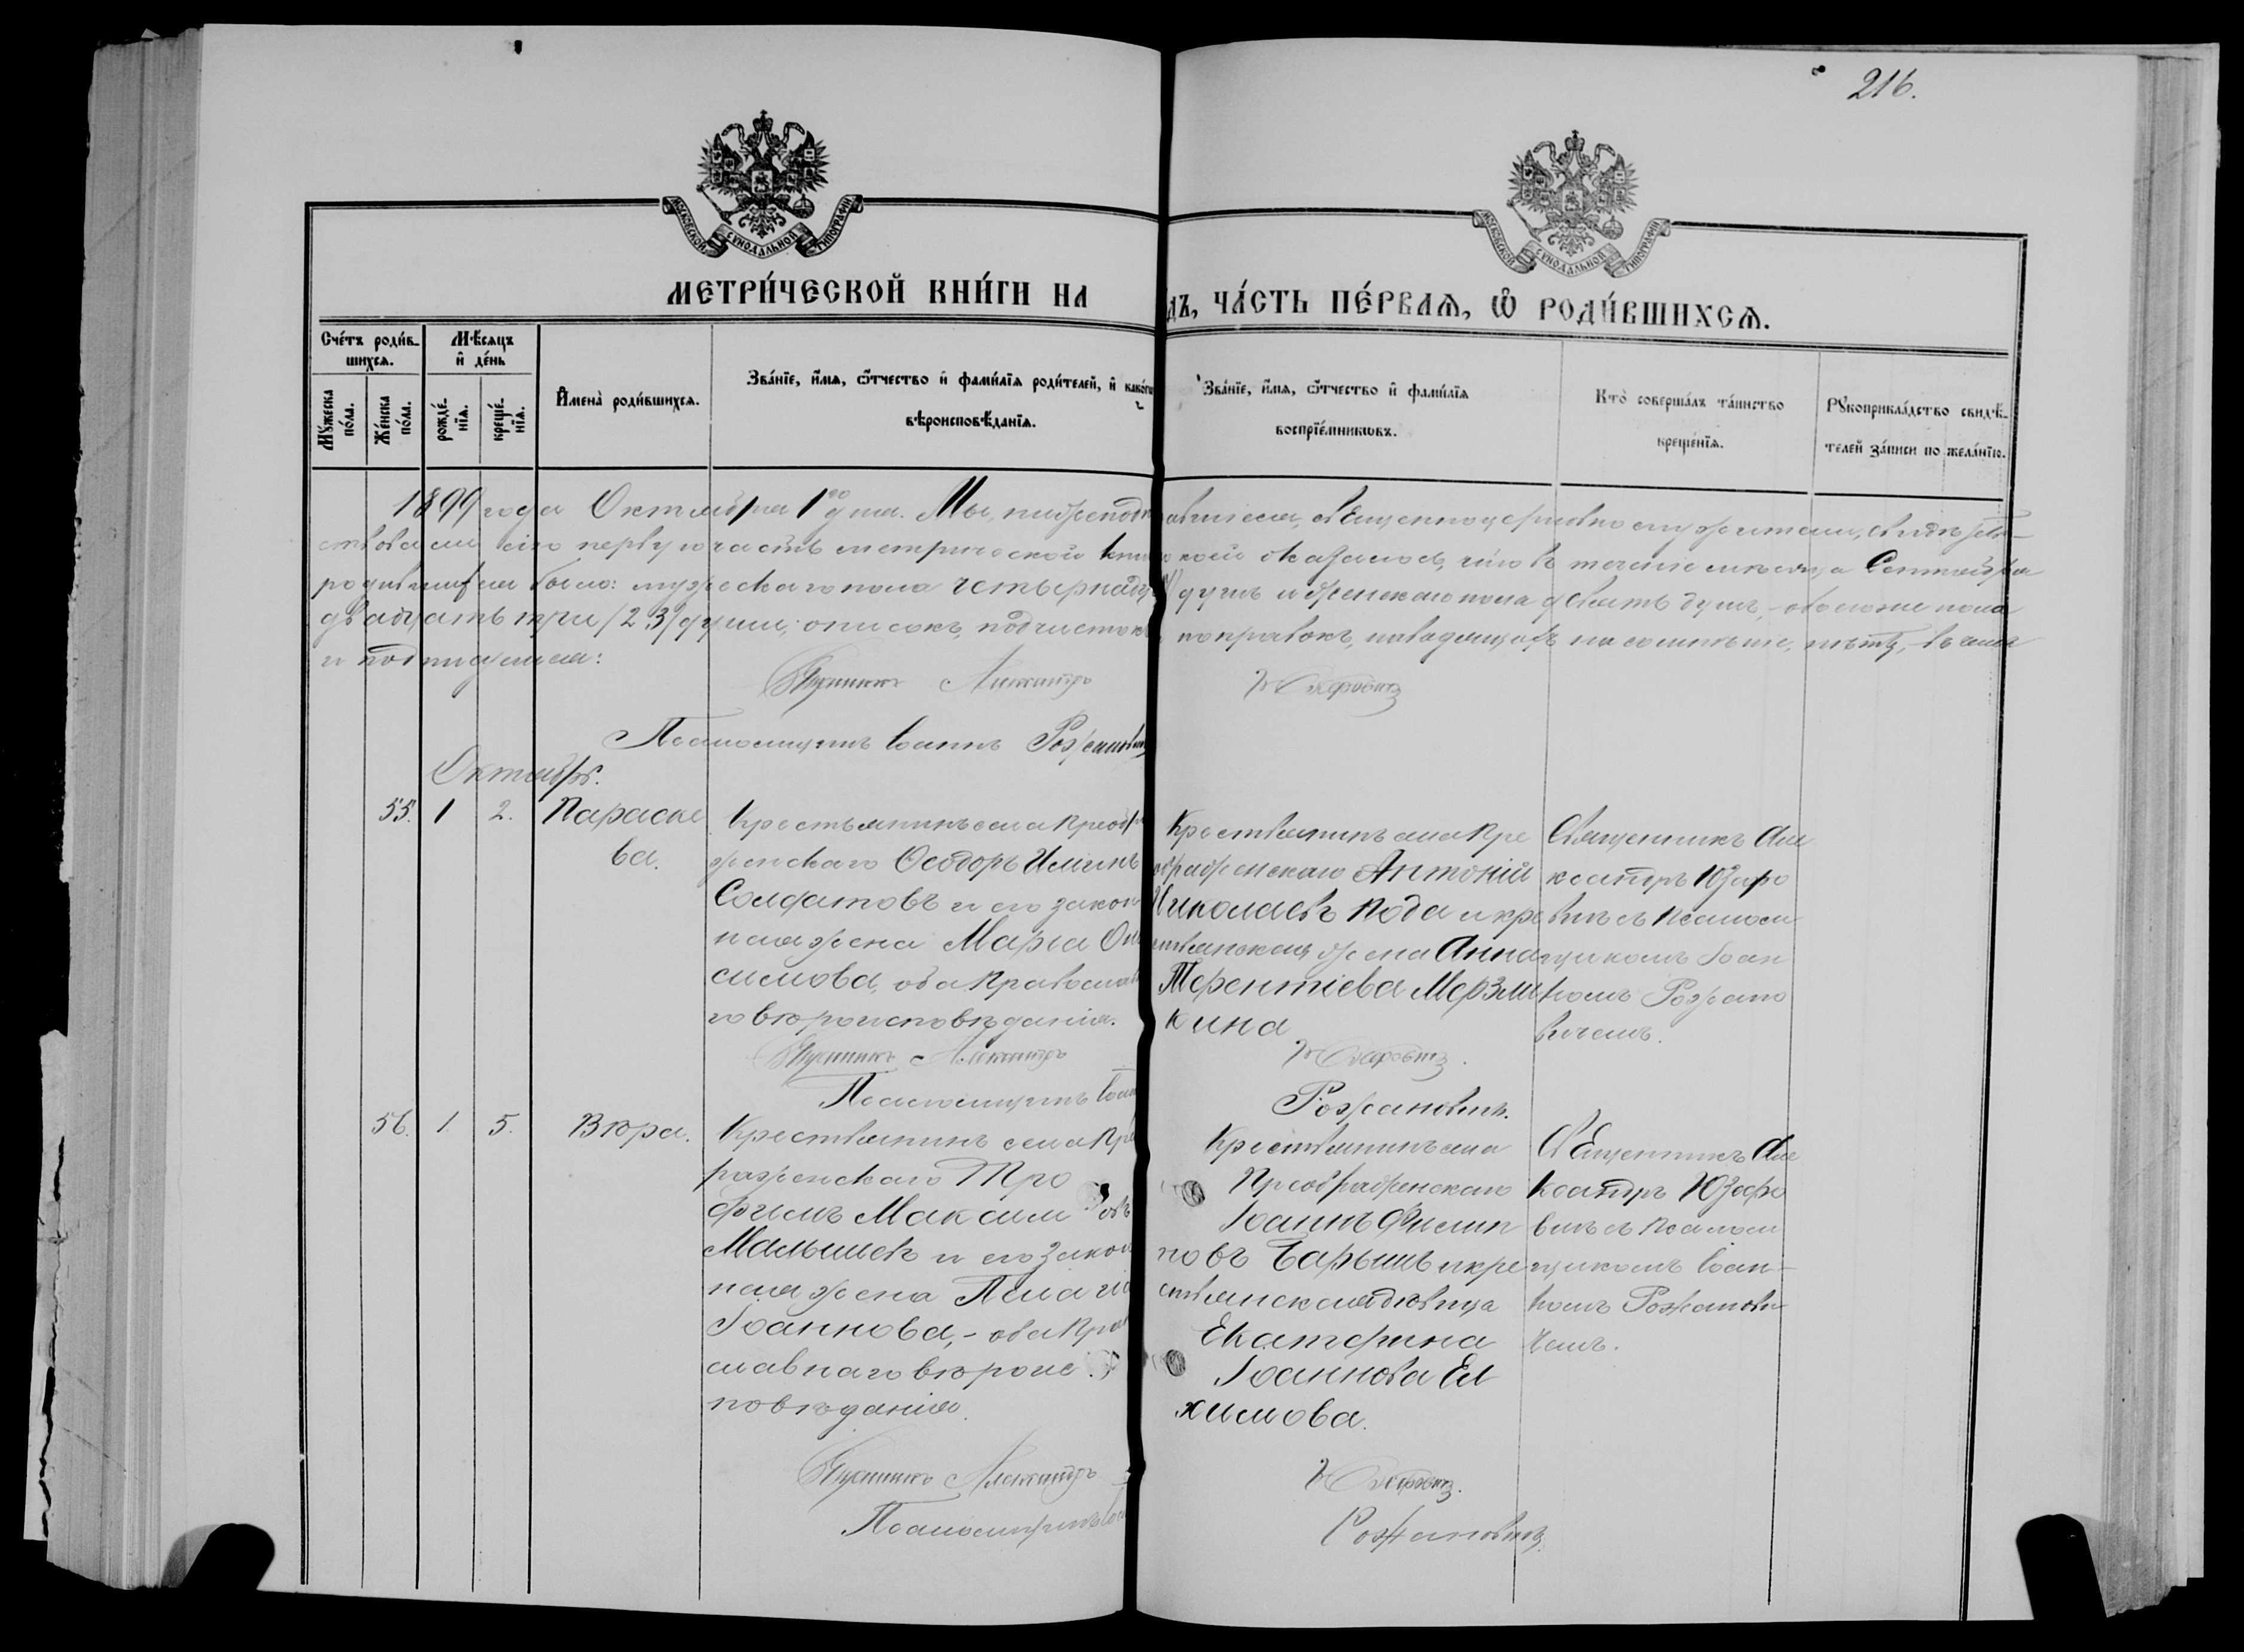 216.
МОСКОВСКОЙ СѴНОДАЛЬНОЙ ТИПОГРАФІИ
МОСКОВСКОЙ СѴНОДАЛЬНОЙ ТИПОГРАФІИ
МЕТРИ́ЧЕСКОЙ КНИ́ГИ НА
ДЪ, ЧА́СТЬ ПЕ́РВАЯ, Ѡ РОДИ́ВШИХСѦ.
Сче́тъ роди́в-
шихсѧ.
Мѣ́сѧцъ
и҆ де́нь
Мꙋ́жеска по́ла.
Же́нска по́ла.
рожде́-
нїѧ.
креще́-
нїѧ.
И҆мена̀ роди́вшихсѧ.
Зва́нїе, и҆́мѧ, ѻ҆́тчество и҆ фами́лїѧ роди́телей, и҆ како́гѡ
вѣроисповѣ́данїѧ.
Зва́нїе, и҆́мѧ, ѻ҆́тчество и҆ фами́лїѧ
воспрїе́мникѡвъ.
Кто̀ соверша́лъ та́инство
креще́нїѧ.
Рꙋкоприкла́дство свидѣ́-
телей за́писи по жела́нїю.
1899 года Октября 1го дня. Мы, нижеподп авшіеся, священноцерковнослужители, свидѣтель-
ствовали сію первую часть метрической кни коей оказалось, что въ теченіе мѣсяца Сентября
родившихся было: мужескаго пола четырнадц душъ и женскаго пола девять душъ, - обоего же пола
двадцать три /23/ души; описокъ, подчистокъ, поправокъ, наводящихъ на сомнѣніе, нѣтъ, - въ чемъ
и подписуемся:
Священникъ Александръ
Юзефовичъ
Псаломщикъ Іоаннъ Рожановичъ
Октябрь.
55. 1 2. Параске
ва.
Крестьянинъ села Преобра
женскаго Ѳеодоръ Илiинъ
Солдатовъ и его закон
ная жена Марѳа Они
симова, оба Православна
го вѣроисповѣданія.
Крестьянинъ села Пре
ображенскаго Антоній
Николаевъ Кода и кре
стьянская жена Анна
Терентіева Мерзли
кина
Священникъ Але
ксандръ Юзефо
вичъ съ псалом
щикомъ Іоан
номъ Рожано
вичемъ.
Священникъ Александръ Юзефовичъ.
Псаломщикъ Іоан Рожановичъ.
56. 1. 5. Вѣра.
Крестьянинъ села Прео
раженскаго Тро
фимъ Максимовъ
Малышевъ и его закон
ная жена Пелагія
Іоаннова, - оба Право
славнаго вѣроис
повѣданія.
Крестьянинъ села
Преображенскаго
Іоаннъ Филип
повъ Барышъ и кре
стьянская дѣвица
Екатерина
Іоаннова Ев
химова.
Священникъ Але
ксандръ Юзефо
вичъ съ псалом
щикомъ Іоан-
номъ Рожанови
чемъ.
Священникъ Александръ Юзефовичъ.
Псаломщикъ Іоа Рожановичъ